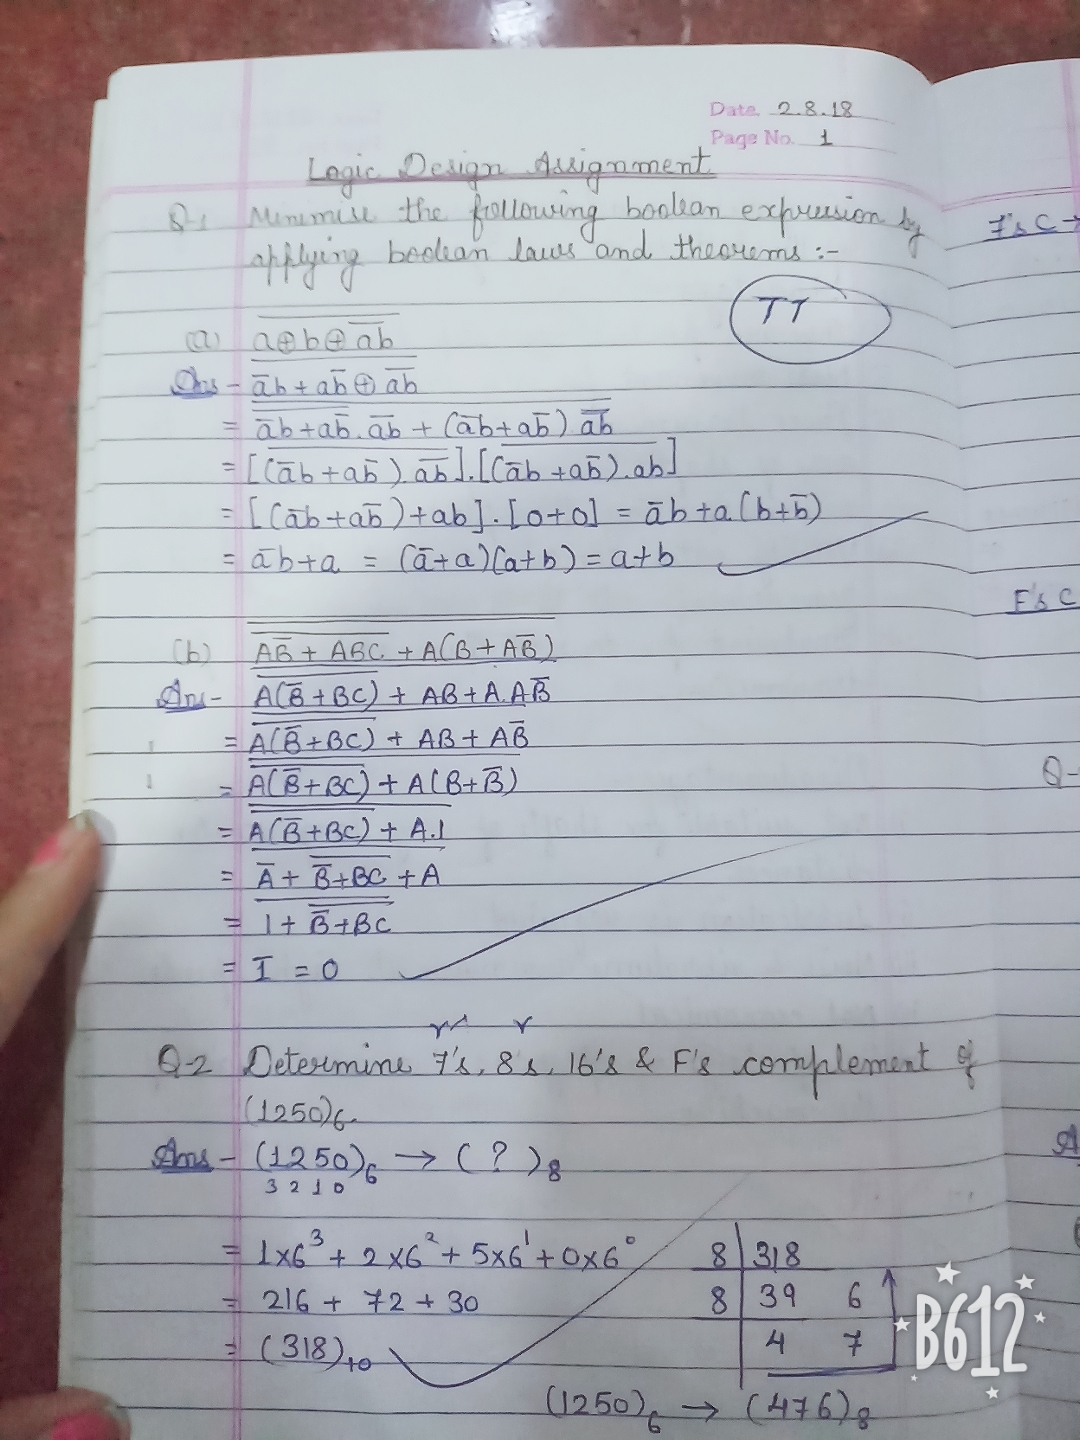 Date 2.8.18
Page No. 1
Logic Design Assignment
Q-1 Minimise the following boolean expression by
applying boolean laws and theorems :-
TT
(a) \overline{a⊕b⊕\overline{ab}}
Ans - \overline{āb + ab̄ ⊕ \overline{ab}}
= \overline{\overline{āb+ab̄}.\overline{ab} + (āb+ab̄).\overline{\overline{ab}}}
= [\overline{(\overline{āb+ab̄}).\overline{ab}}].[\overline{(āb+ab̄).ab}]
= [(āb+ab̄)+ab].[0+0] = āb+a(b+b̄)
= āb+a = (ā+a)(a+b) = a+b
(b) \overline{\overline{AB̄ + ABC} + A(B+AB̄)}
Ans - \overline{\overline{A(B̄+BC)} + AB+A.AB̄}
= \overline{\overline{A(B̄+BC)} + AB + AB̄}
= \overline{\overline{A(B̄+BC)} + A(B+B̄)}
= \overline{\overline{A(B̄+BC)} + A.1}
= \overline{Ā + \overline{B̄+BC} + A}
= \overline{1 + \overline{B̄+BC}}
= \overline{1} = 0
Q-2 Determine 7's, 8's, 16's & F's complement of
(1250)6.
Ans - (1250)6 → ( ? )8
3 2 1 0
= 1×6³ + 2×6² + 5×6¹ + 0×6⁰ 8 | 318
= 216 + 72 + 30 8 | 39 6
= (318)10 4 7
(1250)6 → (476)8
7's C →
F's C
Q-
B612